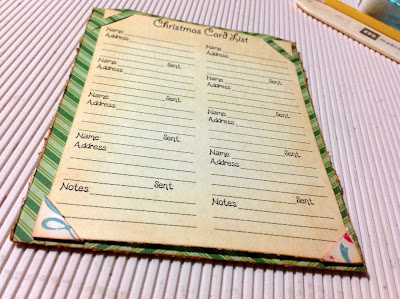 Christmas Card List
Name
Address
Name Sent
Address
Name Sent
Address
Name Sent
Address
Notes Sent
Name
Address
Name Sent
Address
Name Sent
Address
Name Sent
Address
Notes Sent